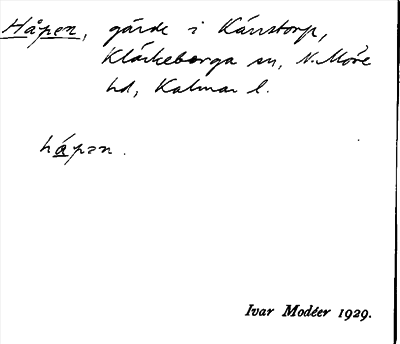 Håpen, gärde i Kärrstorp,
Kläckeberga sn, N. Möre
hd, Kalmar l.
håpən.
Ivar Modéer 1929.